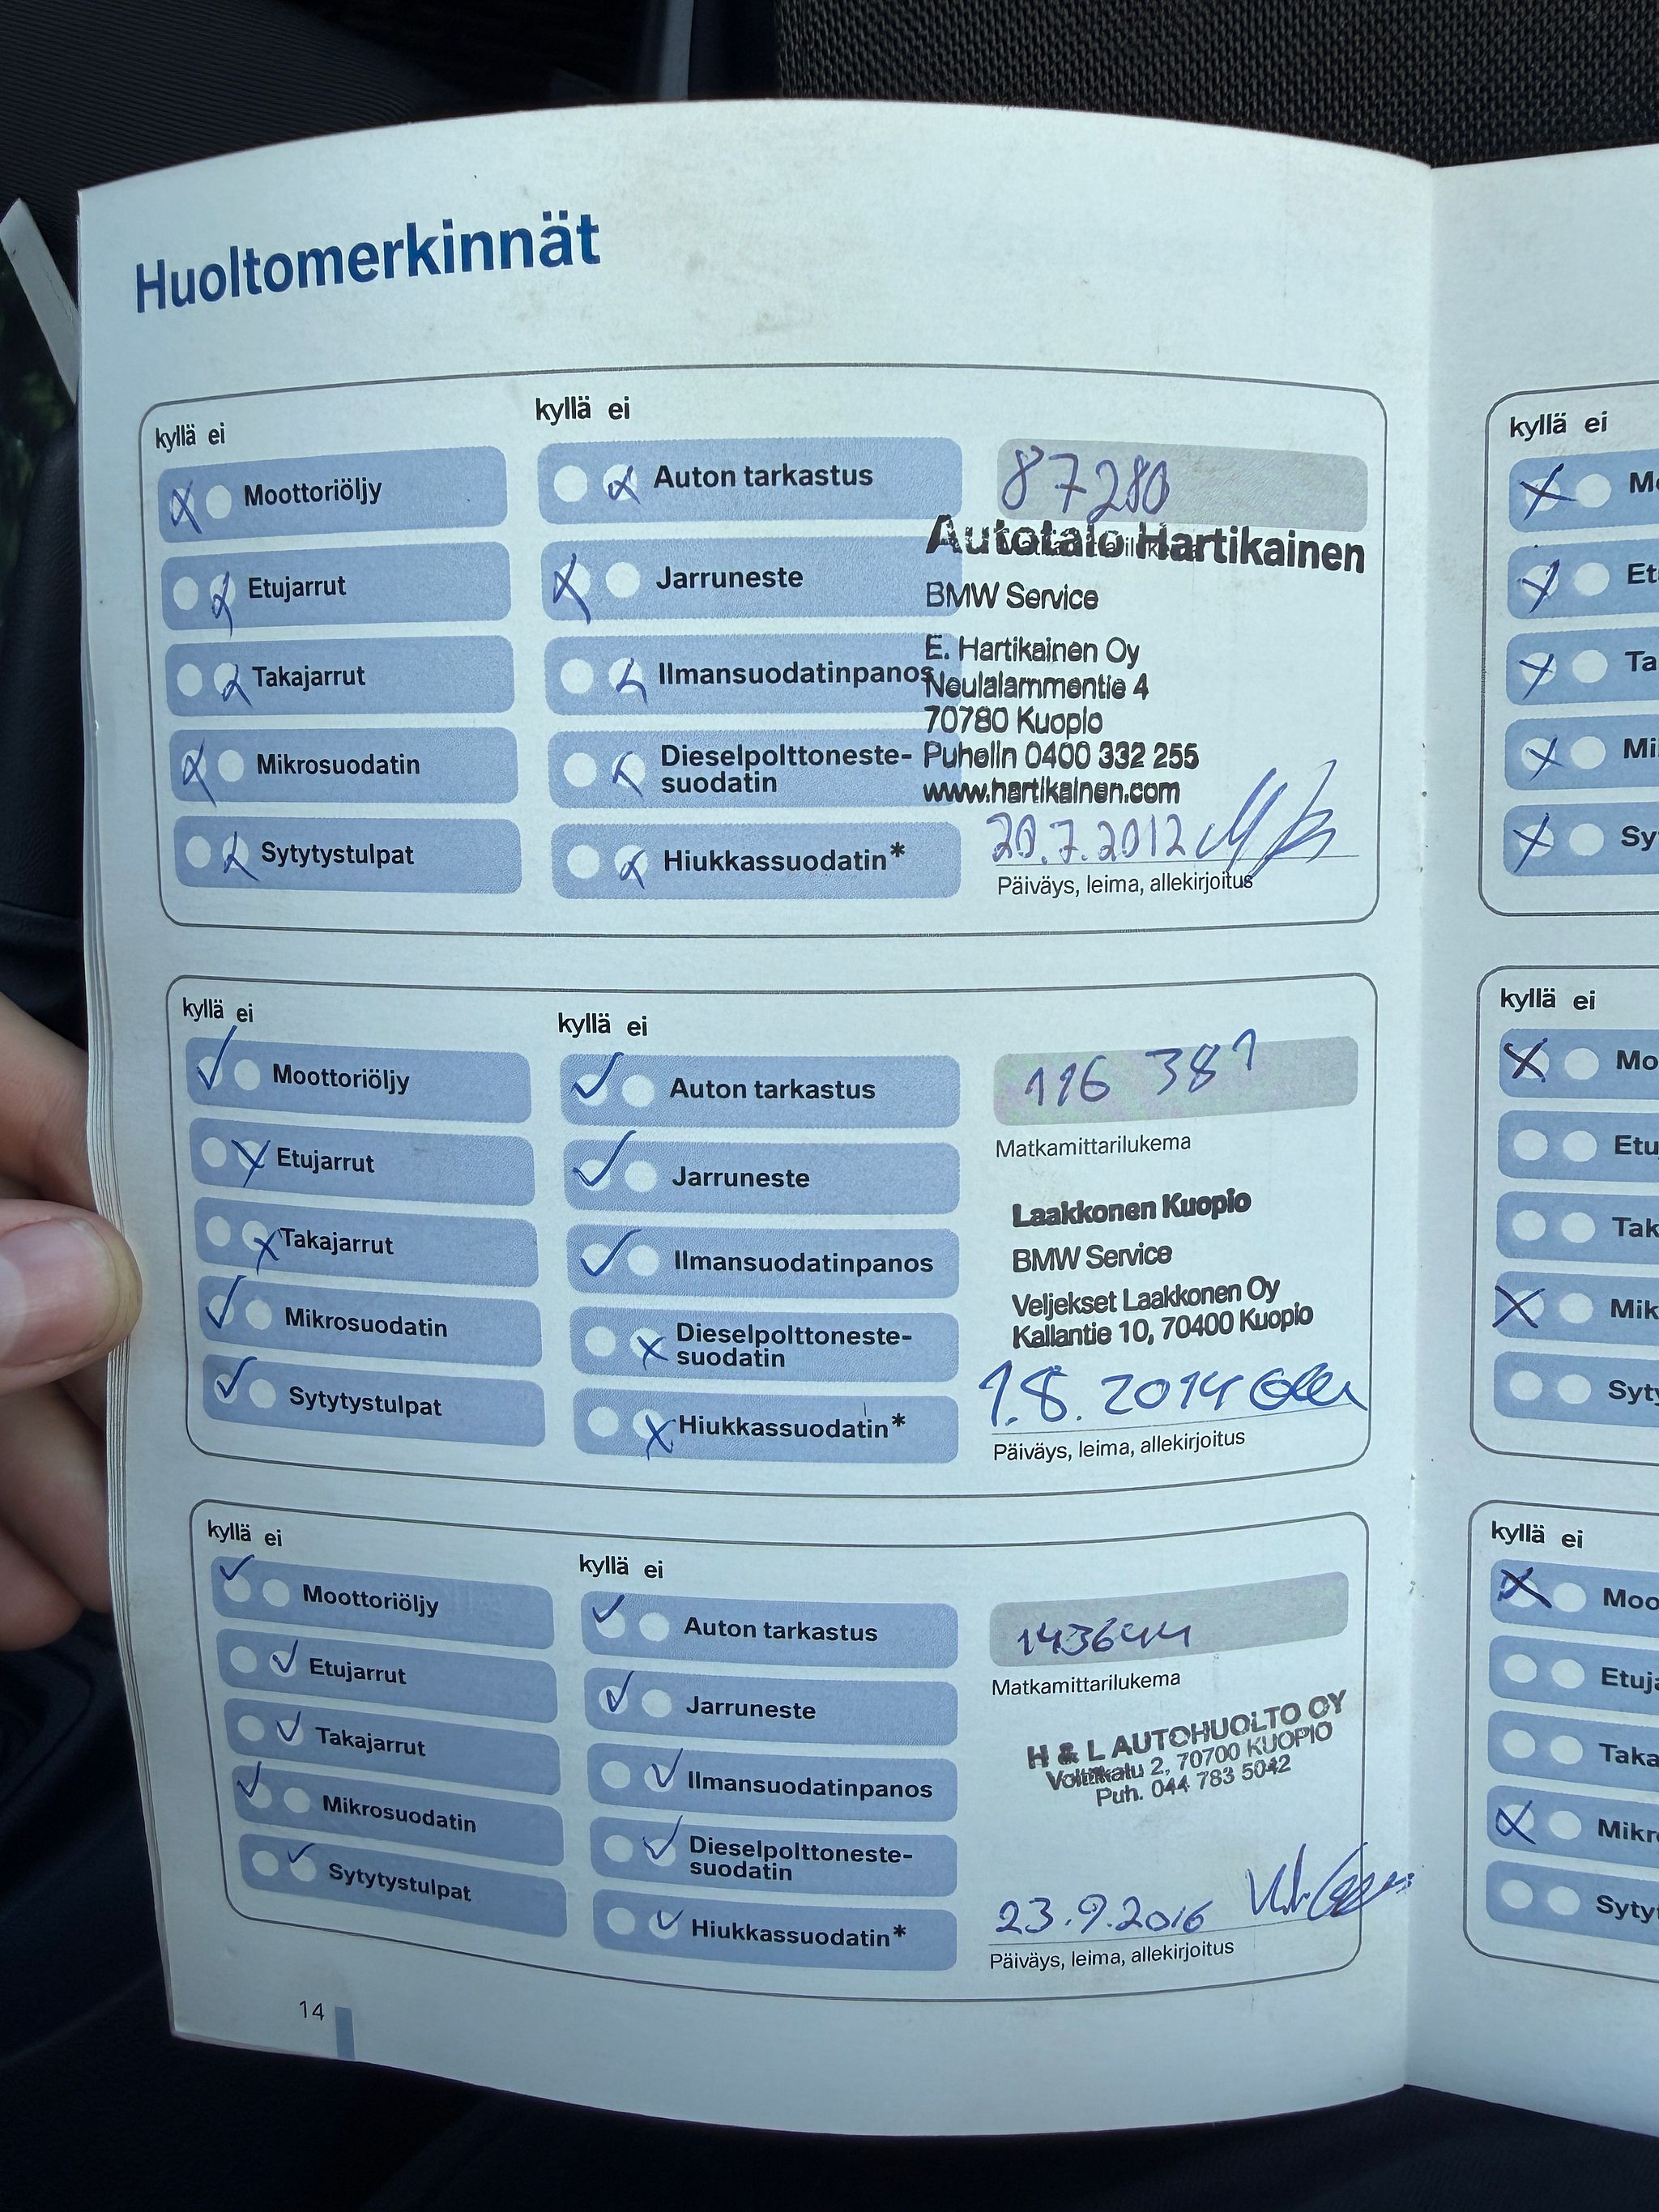 Huoltomerkinnät
kyllä ei
Moottoriöljy
Etujarrut
Takajarrut
Mikrosuodatin
Sytytystulpat
kyllä ei
Auton tarkastus
Jarruneste
Ilmansuodatinpanos
Dieselpolttoneste-
suodatin
Hiukkassuodatin*
87280
Autotalo Hartikainen
BMW Service
E. Hartikainen Oy
Neulalammentie 4
70780 Kuopio
Puhelin 0400 332 255
www.hartikainen.com
20.7.2012
Päiväys, leima, allekirjoitus
kyllä ei
Moottoriöljy
Etujarrut
Takajarrut
Mikrosuodatin
Sytytystulpat
kyllä ei
Auton tarkastus
Jarruneste
Ilmansuodatinpanos
Dieselpolttoneste-
suodatin
Hiukkassuodatin*
116 381
Matkamittarilukema
Laakkonen Kuopio
BMW Service
Veljekset Laakkonen Oy
Kallantie 10, 70400 Kuopio
1.8.2014
Päiväys, leima, allekirjoitus
kyllä ei
Moottoriöljy
Etujarrut
Takajarrut
Mikrosuodatin
Sytytystulpat
kyllä ei
Auton tarkastus
Jarruneste
Ilmansuodatinpanos
Dieselpolttoneste-
suodatin
Hiukkassuodatin*
143644
Matkamittarilukema
H & L AUTOHUOLTO OY
Volttikatu 2, 70700 KUOPIO
Puh. 044 783 5042
23.9.2016
Päiväys, leima, allekirjoitus
14
kyllä ei
Mo
Et
Ta
Mi
Sy
kyllä ei
Mo
Etu
Tak
Mik
Syty
kyllä ei
Moo
Etuj
Taka
Mikr
Syty